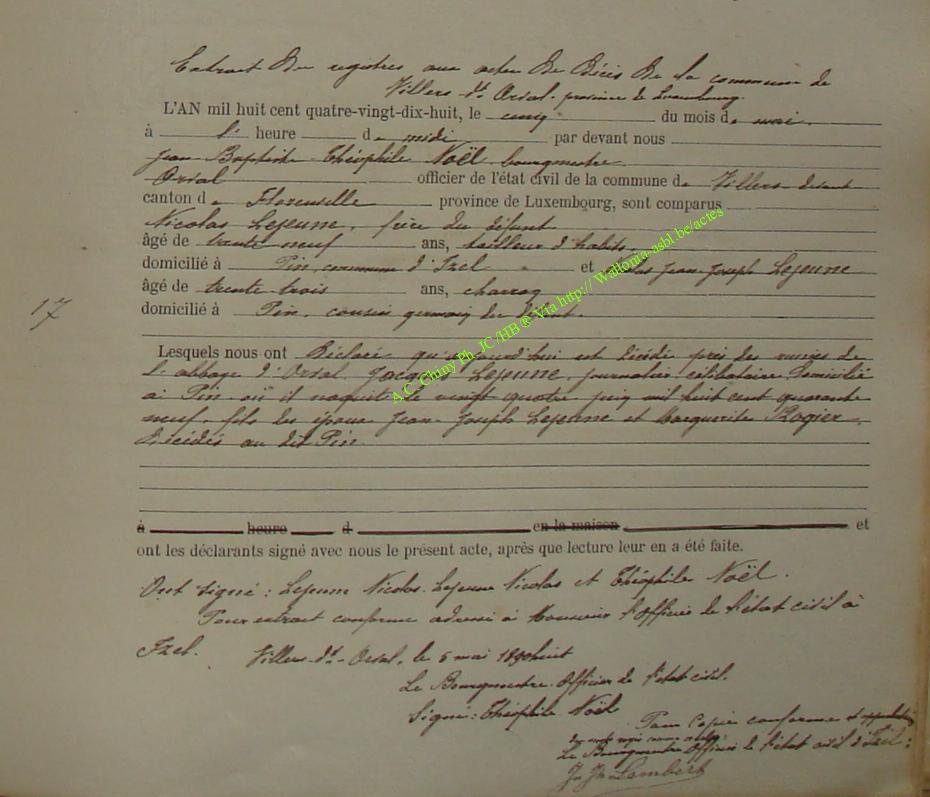 Extrait des registres aux actes de Décès de la commune de
Villers-dt-Orval, province de Luxembourg.
L'AN mil huit cent quatre-vingt-dix-huit, le cinq du mois de mai
à heure de midi par devant nous
Jean Baptiste Théophile Noël bourgmestre
officier de l'état civil de la commune de Villers devant
Orval
canton de Florenville province de Luxembourg, sont comparus
Nicolas Lejeune, frère du défunt
âgé de trente neuf ans, tailleur d'habits,
domicilié à Pin, commune d'Izel et Jean Joseph Lejeune
âgé de trente trois ans, charron
domicilié à Pin, cousin germain du défunt.
17
Lesquels nous ont déclaré qu'aujourd'hui est décédé près des ruines de
l'abbaye d'Orval Jacques Lejeune, journalier célibataire domicilié
à Pin où il naquit le vingt quatre juin mil huit cent quarante
neuf, fils des époux Jean-Joseph Lejeune et Marguerite Rogier
décédés au dit Pin
à heure d en la maison et
ont les déclarants signé avec nous le présent acte, après que lecture leur en a été faite.
Ont signé : Lejeune Nicolas, Lejeune Nicolas et Théophile Noël.
Pour extrait conforme adressé à Monsieur l'Officier de l'état civil à
Izel. Villers-dt-Orval, le 5 mai 1890huit
Le Bourgmestre Officier de l'état civil.
Signé : Théophile Noël
Pour Copie conforme et
Le Bourgmestre Officier de l'état civil d'Izel :
Lambert
A.C. Chiny Ph. JC /HB ® Via http:// Wallonia-asbl.be/actes